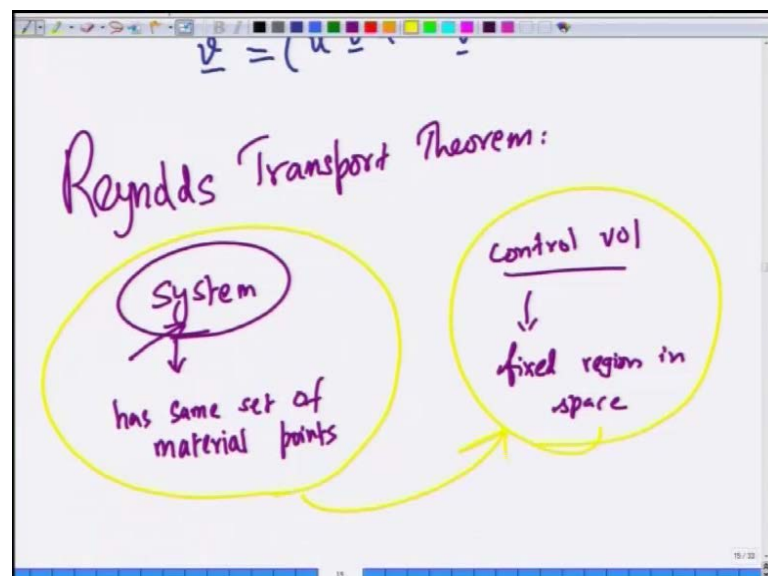 v = (u v
Reynolds Transport Theorem:
system
has same set of
material points
control vol
fixed region in
space
15 / 33